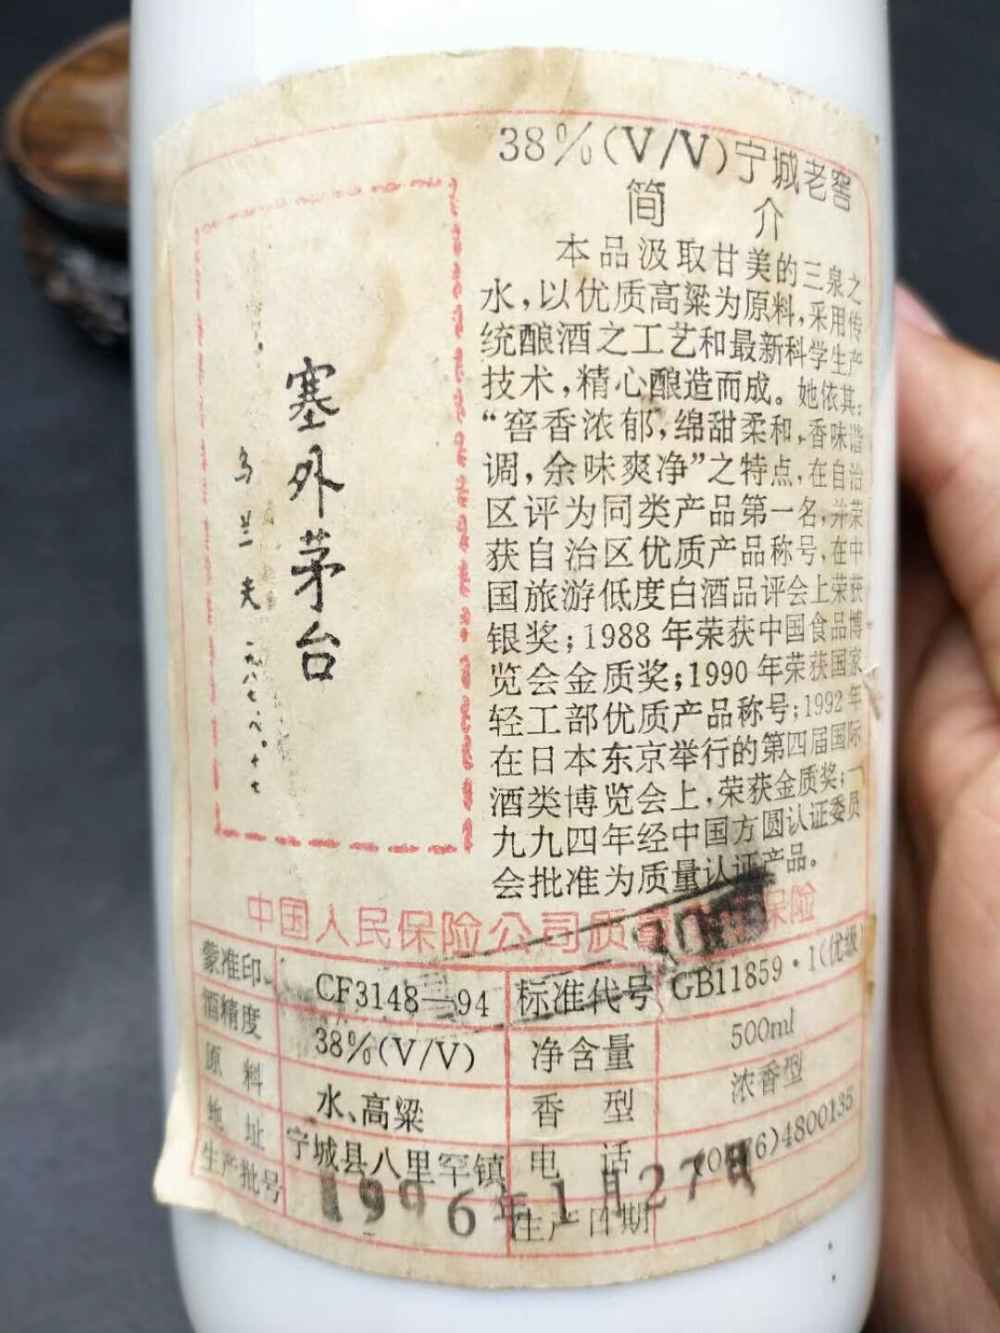 38%(V/V)宁城老窖
简 介
本品汲取甘美的三泉之
水,以优质高粱为原料,采用传
统酿酒之工艺和最新科学生产
技术,精心酿造而成。她依其:
“窖香浓郁,绵甜柔和,香味谐
调,余味爽净”之特点,在自治
区评为同类产品第一名,并荣
获自治区优质产品称号,在中
国旅游低度白酒品评会上荣获
银奖;1988年荣获中国食品博
览会金质奖;1990年荣获国家
轻工部优质产品称号;1992年
在日本东京举行的第四届国际
酒类博览会上,荣获金质奖;一
九九四年经中国方圆认证委员
会批准为质量认证产品。
塞外茅台
乌兰夫 一九八七.八.十七
中国人民保险公司质量 保险
蒙准印 CF3148—94 标准代号 GB11859·1(优级)
酒精度 38%(V/V) 净含量 500ml
原料 水、高粱 香型 浓香型
地址 宁城县八里罕镇 电话 6)4800135
生产批号 生产日期
1996年1月27日